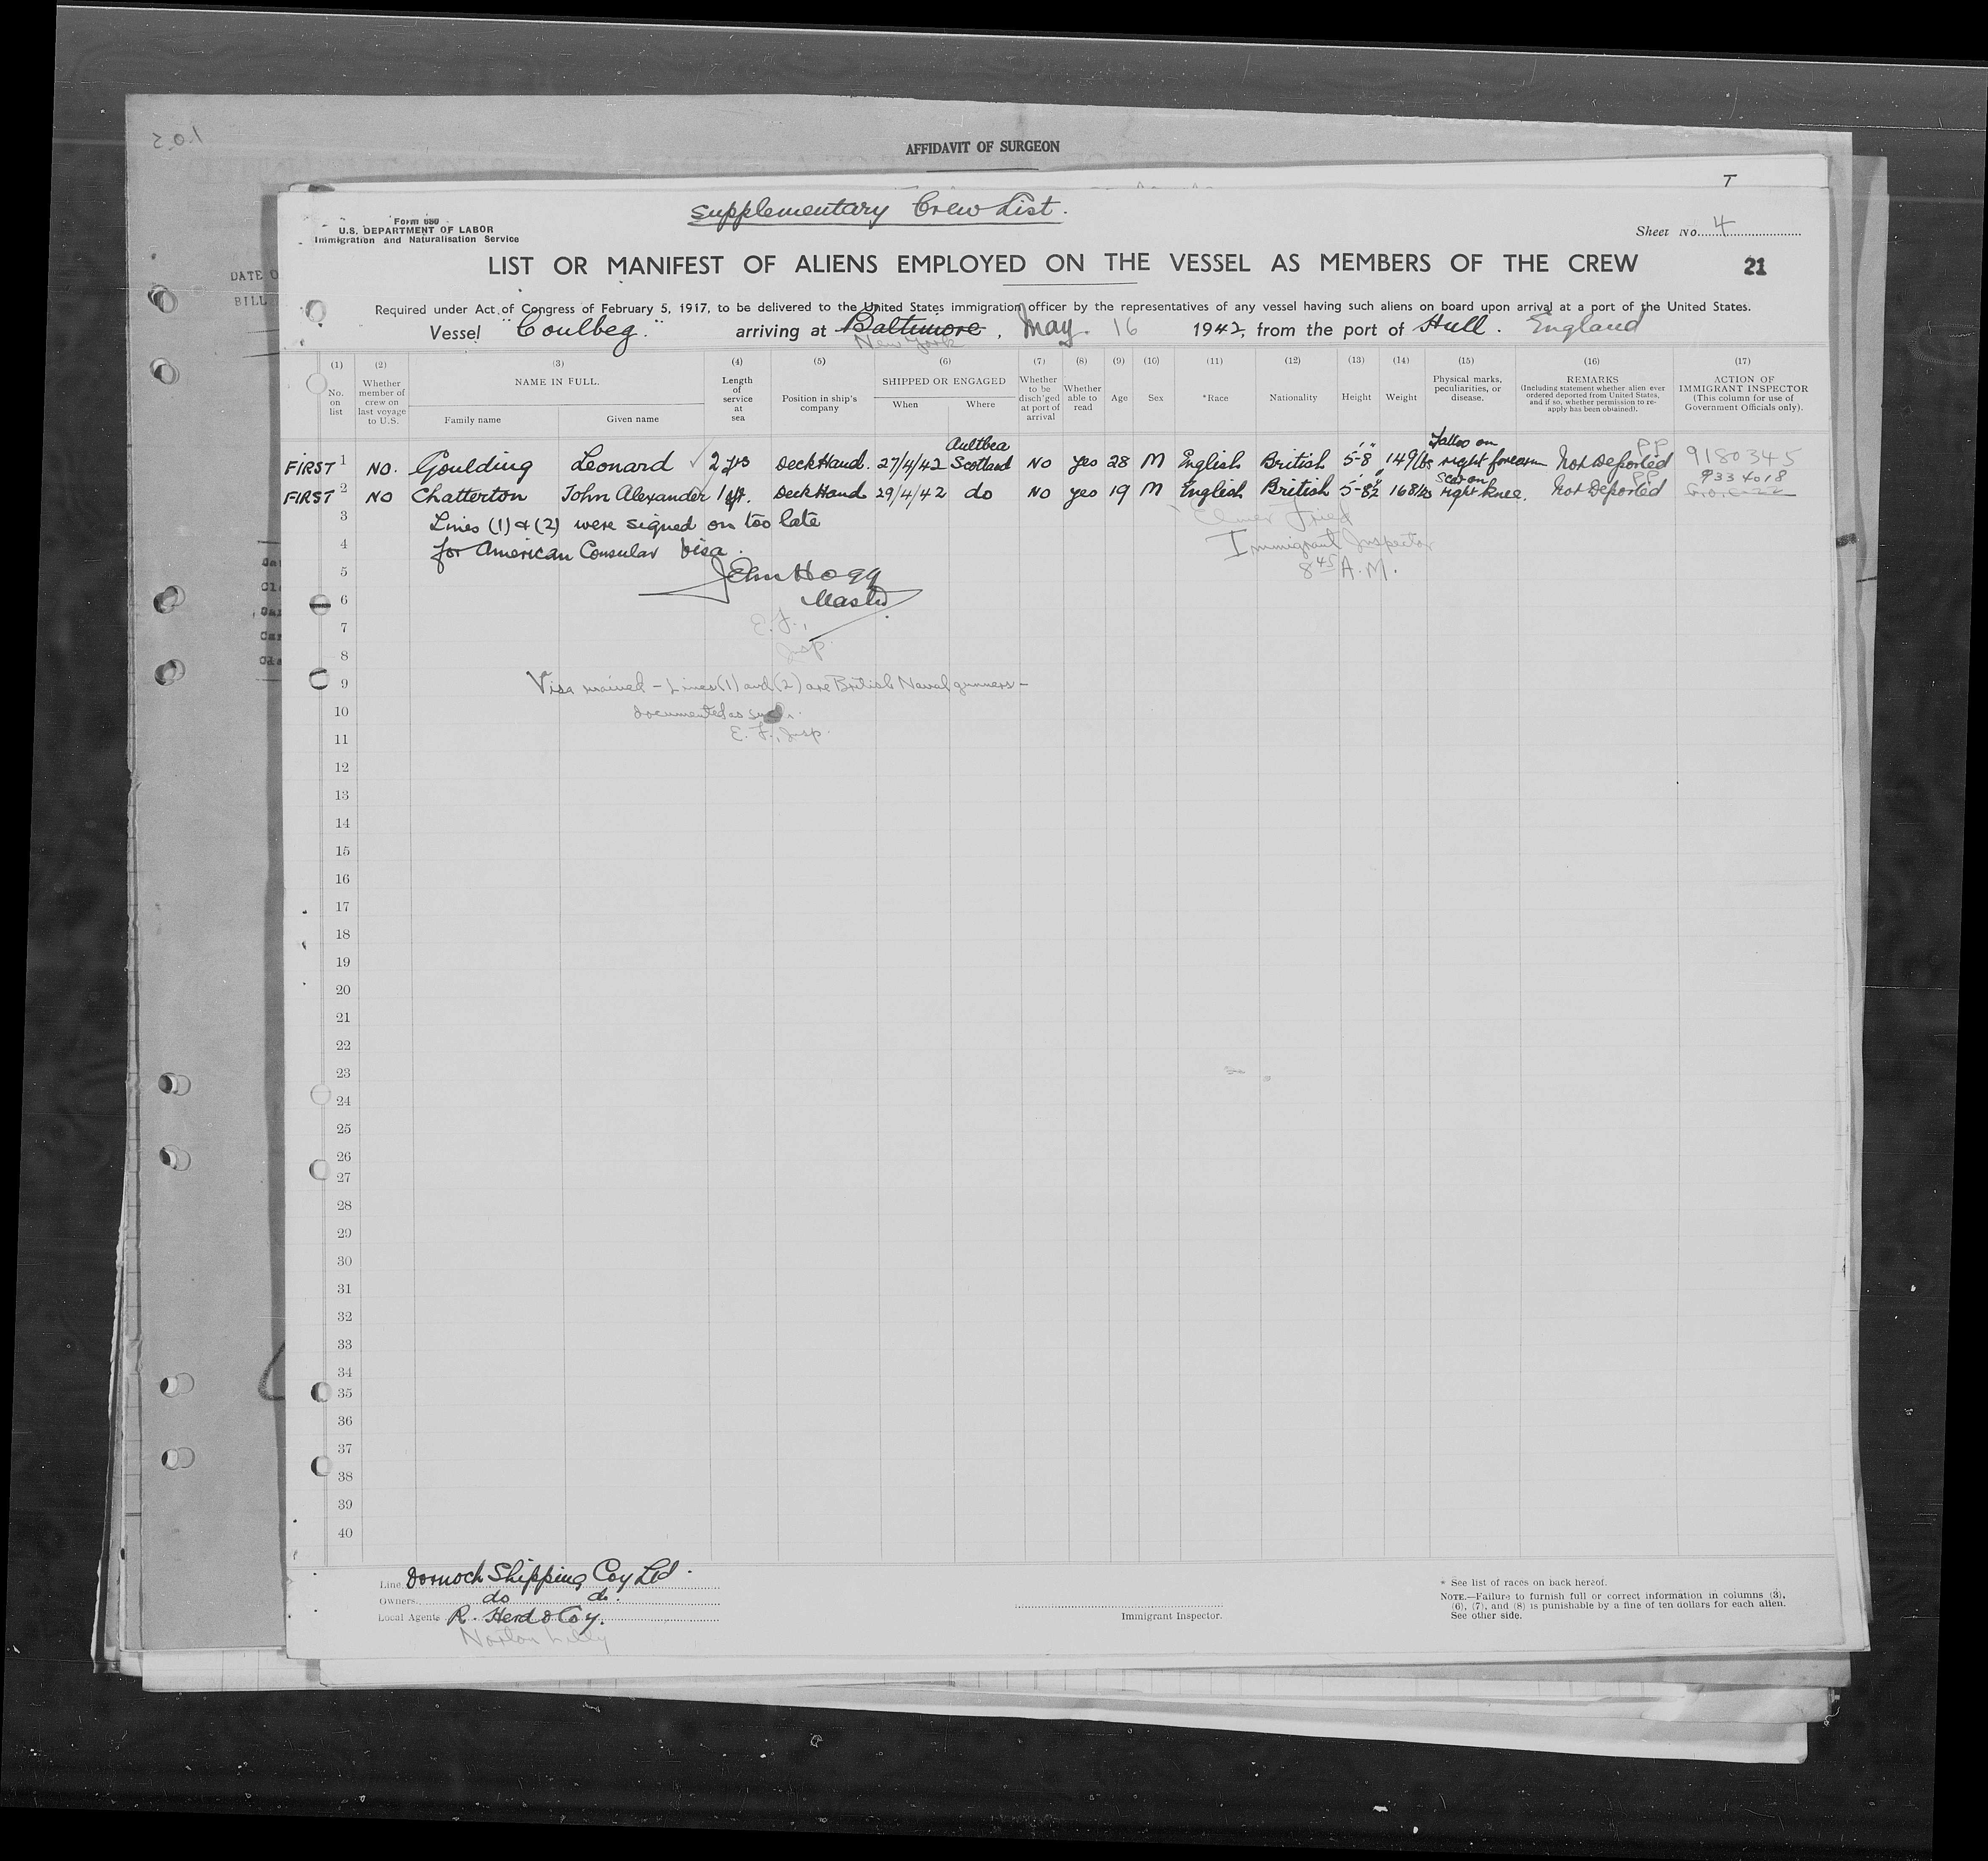 AFFIDAVIT OF SURGEON
T
Supplementary Crew List.
Form 680
U.S. DEPARTMENT OF LABOR
Immigration and Naturalisation Service
Sheet No. 4
LIST OR MANIFEST OF ALIENS EMPLOYED ON THE VESSEL AS MEMBERS OF THE CREW
21
Required under Act of Congress of February 5, 1917, to be delivered to the United States immigration officer by the representatives of any vessel having such aliens on board upon arrival at a port of the United States.
Vessel "Coulbeg." arriving at Baltimore, May. 16 1942, from the port of Hull. England
New York
(1) (2) (3) (4) (5) (6) (7) (8) (9) (10) (11) (12) (13) (14) (15) (16) (17)
No. on list
Whether member of crew on last voyage to U.S.
NAME IN FULL.
Family name
Given name
Length of service at sea
Position in ship's company
SHIPPED OR ENGAGED
When
Where
Whether to be disch'ged at port of arrival
Whether able to read
Age
Sex
*Race
Nationality
Height
Weight
Physical marks, peculiarities, or disease.
REMARKS
(Including statement whether alien ever ordered deported from United States, and if so, whether permission to re-apply has been obtained).
ACTION OF IMMIGRANT INSPECTOR
(This column for use of Government Officials only).
FIRST 1 NO. Goulding Leonard 2 yrs Deck Hand. 27/4/42 Aultbea Scotland NO yes 28 M English British 5'-8" 149 lbs Tattoo on right forearm Not Deported PP 9180345
FIRST 2 NO Chatterton John Alexander 1 yr. Deck Hand 29/4/42 do NO yes 19 M English British 5'-8½" 168 lbs Scar on right knee. Not Deported PP 9334018
3 Lines (1) & (2) were signed on too late
Elmer Fried
4 for American Consular Visa.
Immigrant Inspector
5 John Hogg
8 45 A.M.
6 Master
7 E.F.,
8 Insp.
9 Visa waived - Lines (1) and (2) are British Naval gunners -
10 documented as such.
11 E. F., Insp.
12
13
14
15
16
17
18
19
20
21
22
23
24
25
26
27
28
29
30
31
32
33
34
35
36
37
38
39
40
Line Dornoch Shipping Coy Ltd.
Owners do do.
Local Agents R. Herd & Coy.
Norton Lilly
Immigrant Inspector.
* See list of races on back hereof.
NOTE.—Failure to furnish full or correct information in columns (3), (6), (7), and (8) is punishable by a fine of ten dollars for each alien. See other side.